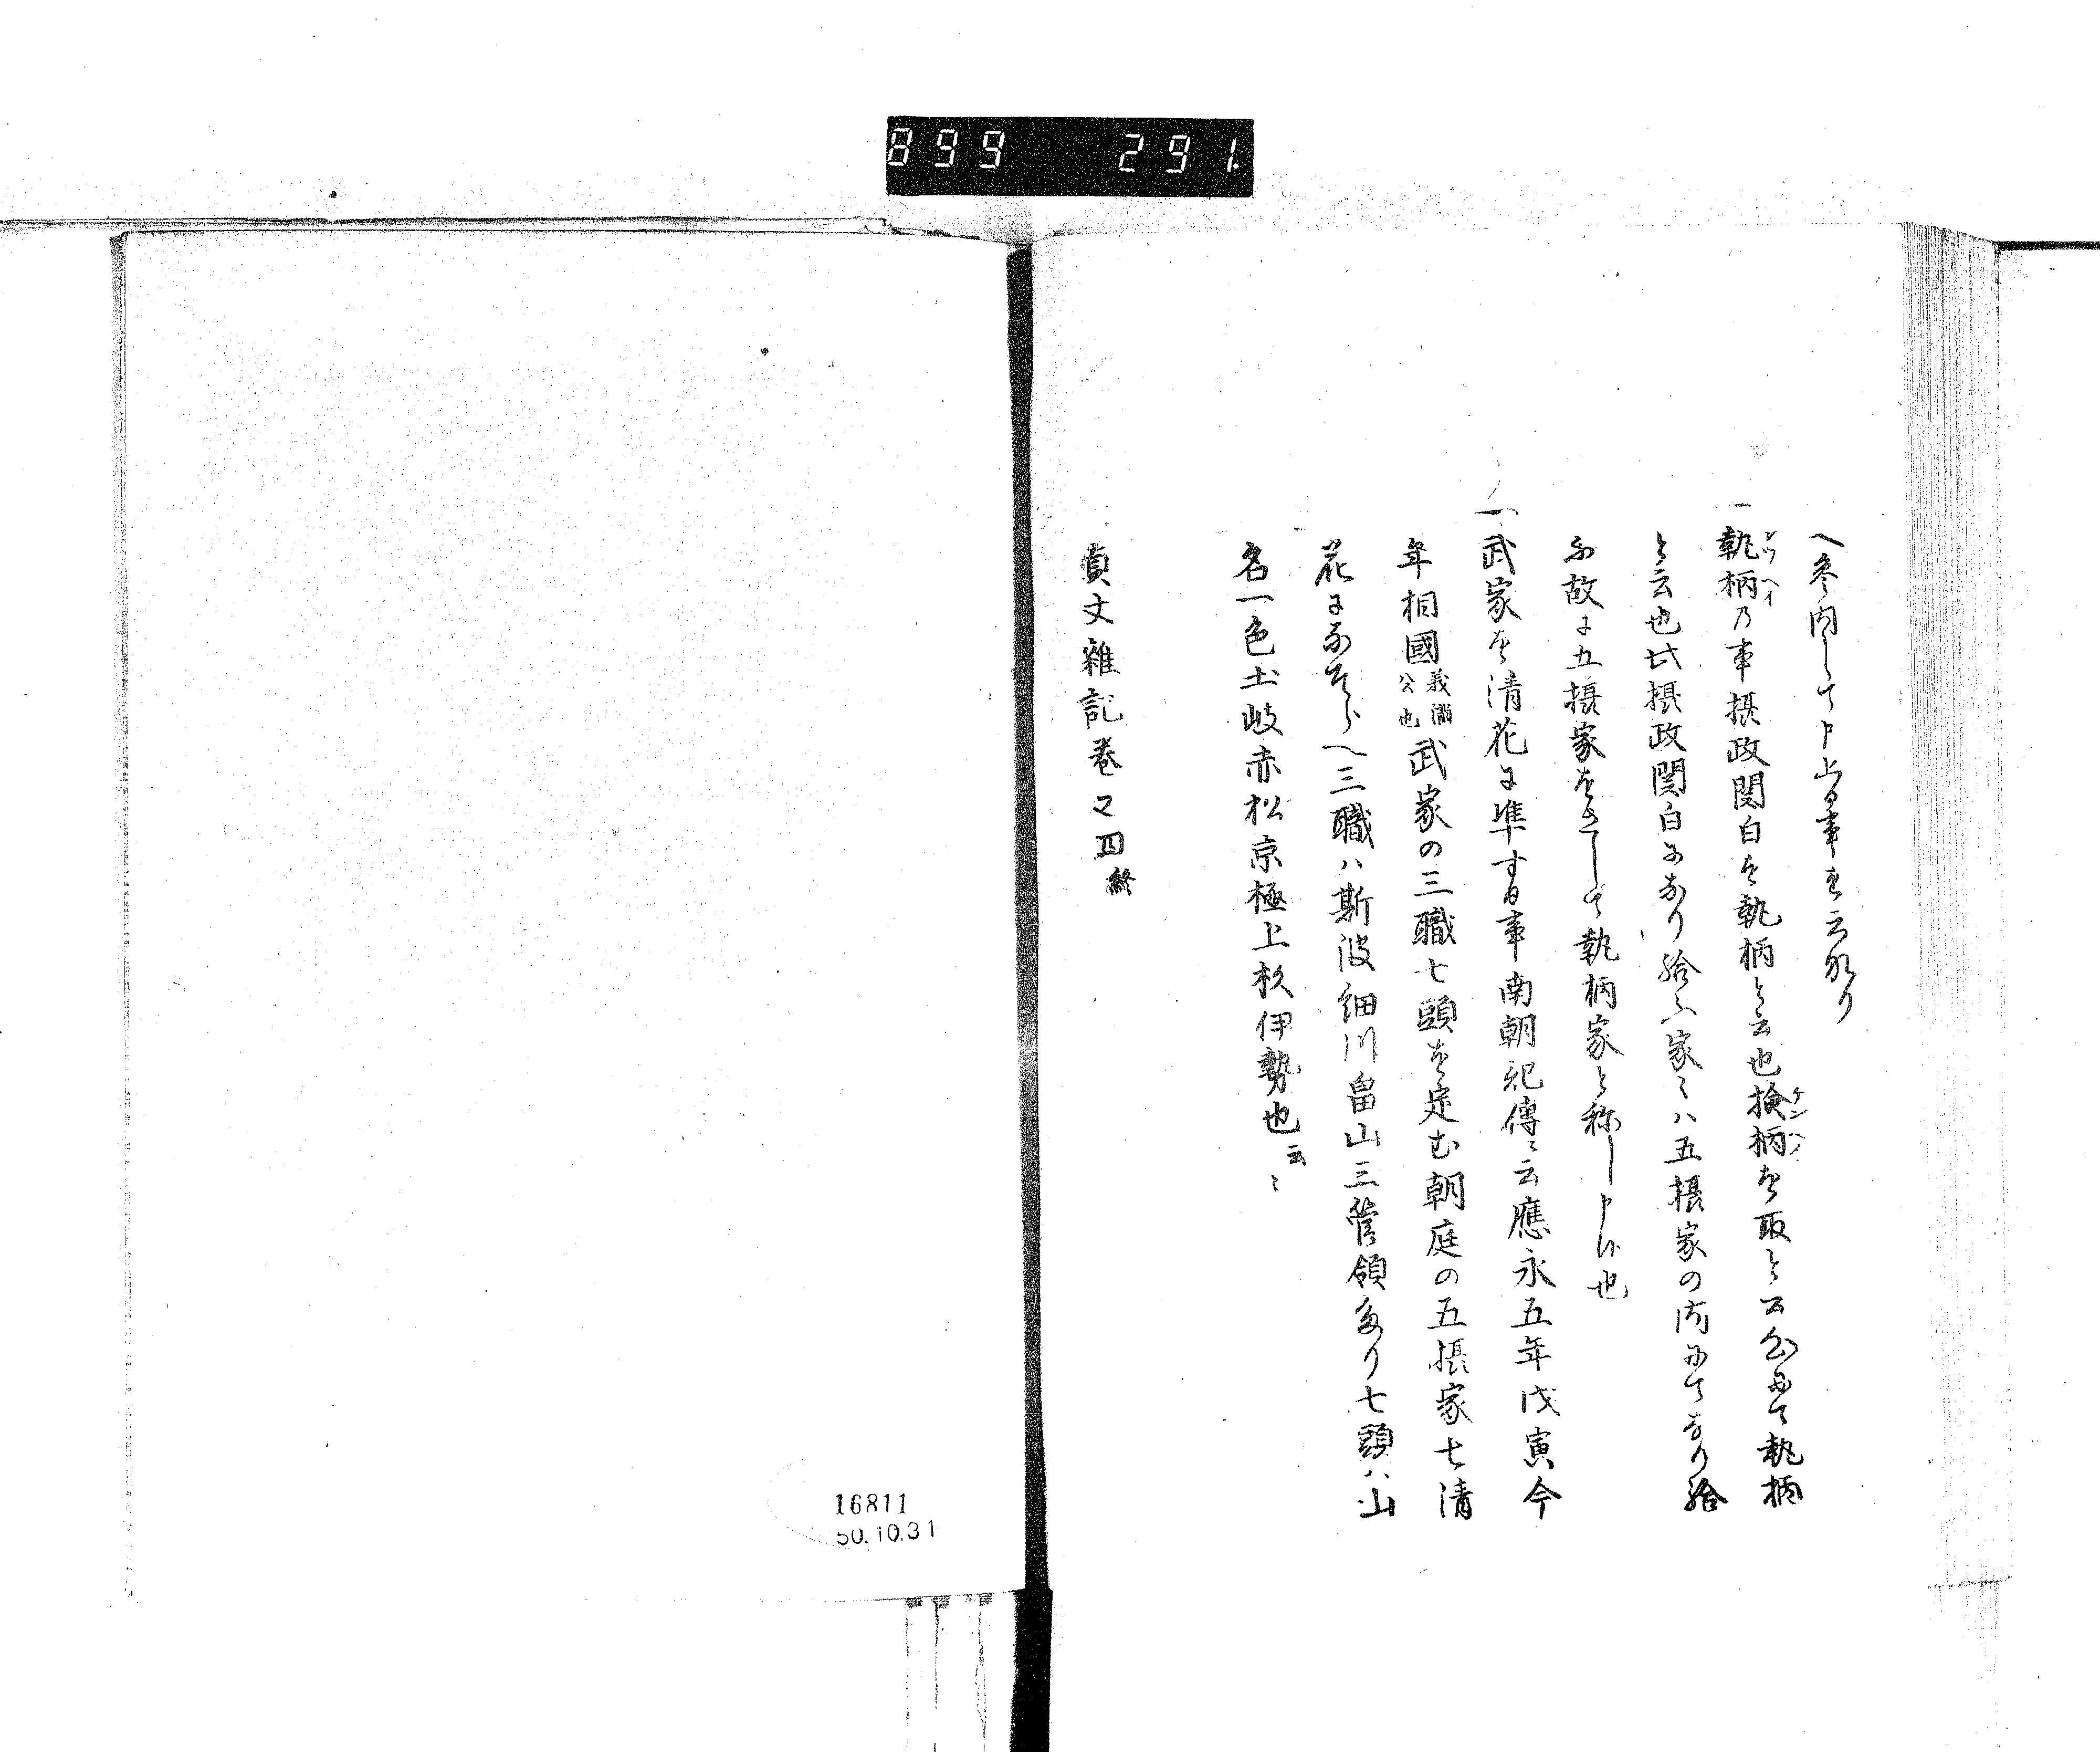 899 291.
へ参内して申上る事を云なり
一執柄乃事摂政関白を執柄と云也撿柄を取と云心にて執柄
シツヘイ
ケンヘイ
と云也此摂政関白になり給ふ家々ハ五摂家の内にてなり給
ふ故に五摂家をさして執柄家と称し申候也
一武家を清花に準する事南朝紀傳ニ云應永五年戊寅今
年相國義満公也武家の三職七頭を定む朝庭の五摂家七清
花になそらへ三職ハ斯波細川畠山三管領なり七頭ハ山
名一色土岐赤松京極上杉伊勢也云々
貞丈雑記巻之四終
16811
50.10.31